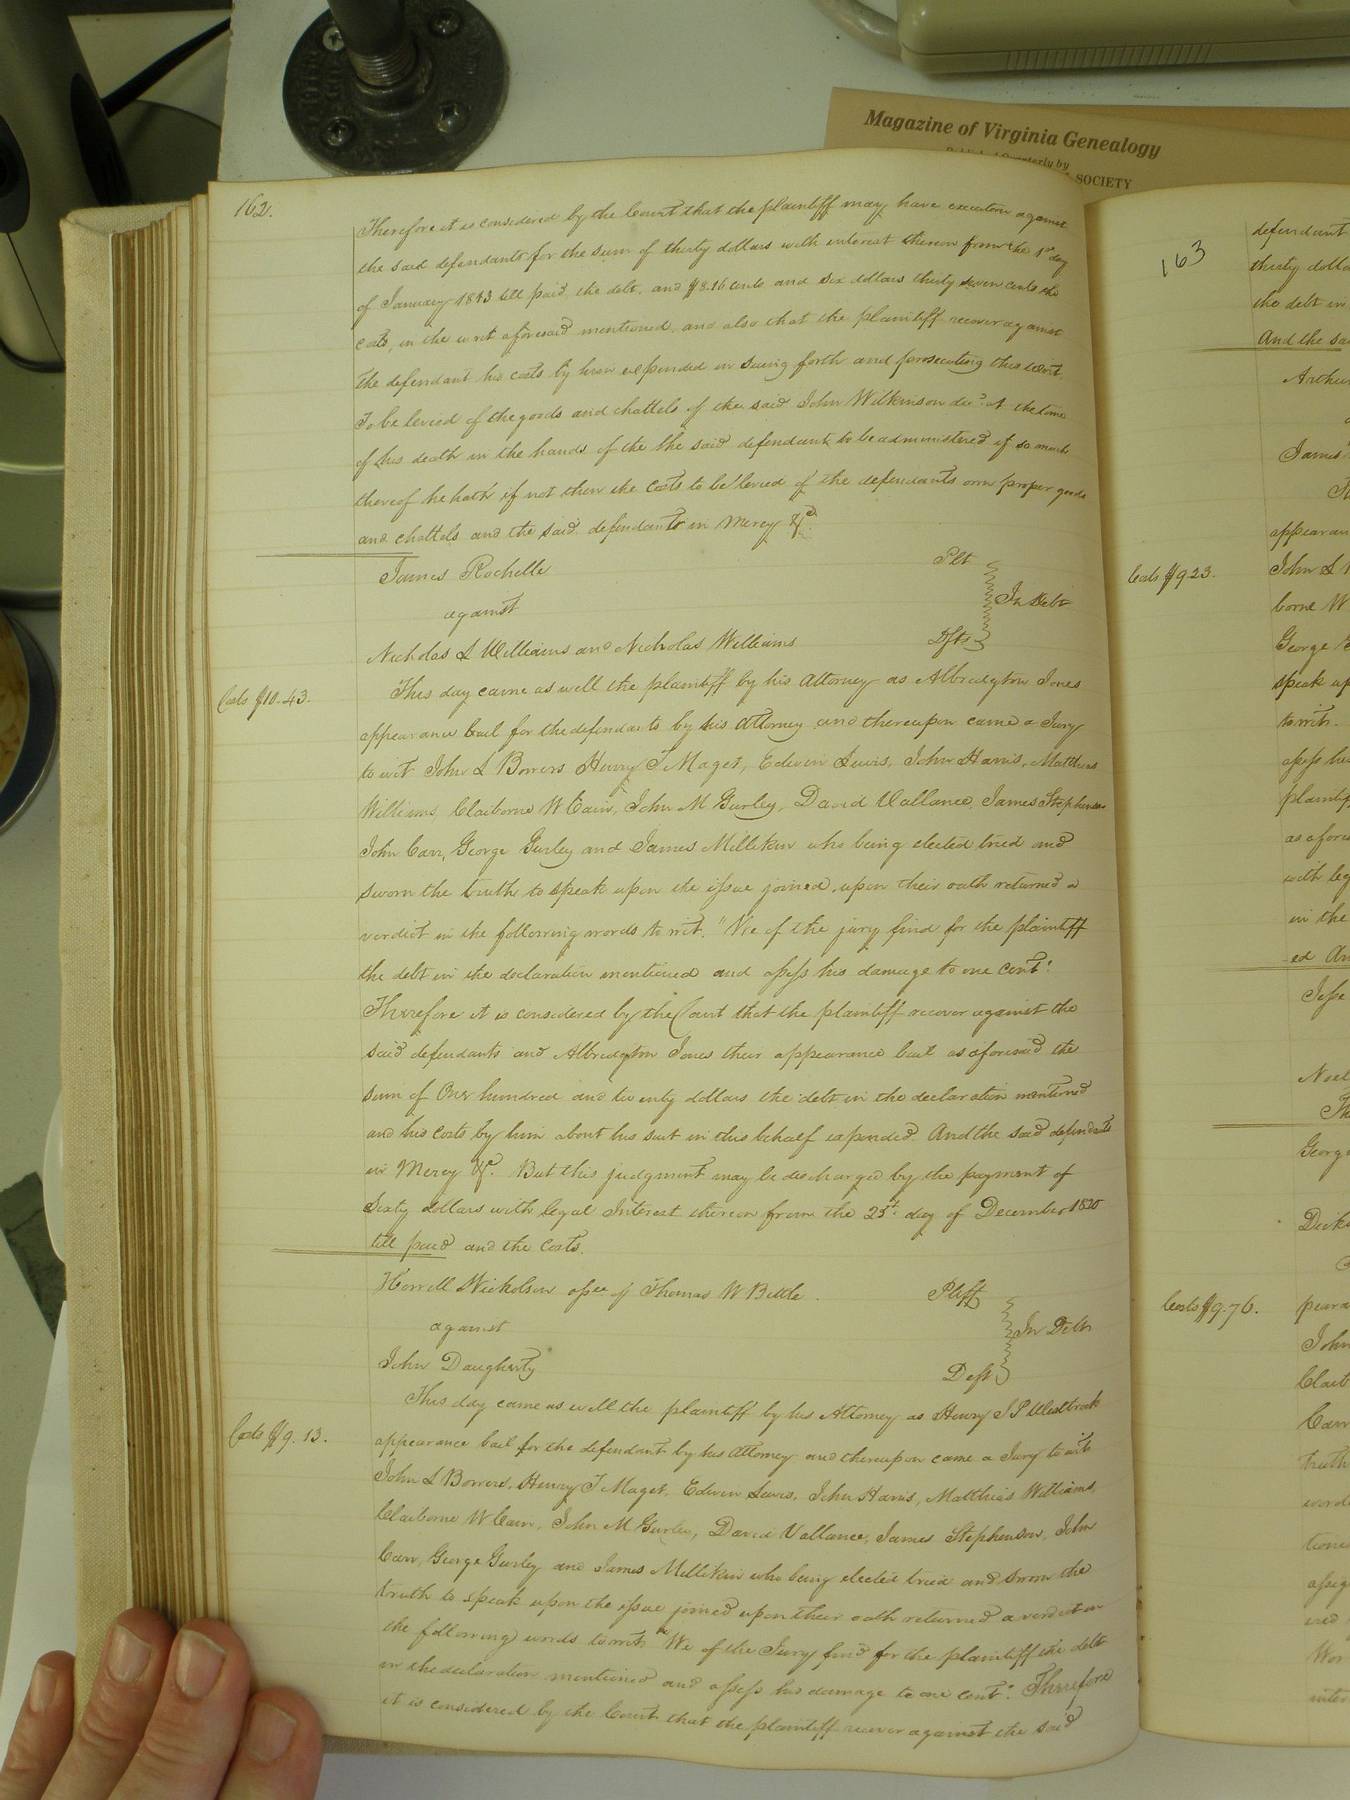 Magazine of Virginia Genealogy
Quarterly by
SOCIETY
162.
Therefore it is considered by the Court that the plaintiff may have execution against
the said defendants for the sum of thirty dollars with interest thereon from the 1st day
of January 1843 till paid, the debt, and $8.16 cents and six dollars thirty seven cents the
costs, in the writ aforesaid mentioned, and also that the plaintiff recover against
the defendant his costs by him expended in suing forth and prosecuting this writ
To be levied of the goods and chattels of the said John Wilkinson decd at the time
of his death in the hands of the the said defendant to be administered if so much
thereof he hath if not then the Costs to be levied of the defendants own proper goods
and chattels and the said defendants in Mercy &c.
James Rochelle Plt
against In Debt
Nicholas L Williams and Nicholas Williams Dfts
Costs $10.43.
This day came as well the plaintiff by his Attorney as Albridgton Jones
appearance bail for the defendants by his Attorney and thereupon came a Jury
to wit John L Bowers Henry T Maget, Edwin Lewis, John Harris, Matthias
Williams, Claiborne W Carr, John M Gurley, David Vallance, James Stephenson
John Carr, George Gurley and James Millikin who being elected tried and
sworn the truth to speak upon the issue joined, upon their oath returned a
verdict in the following words to wit. "We of the jury find for the plaintiff
the debt in the declaration mentioned and assess his damage to one cent".
Therefore it is considered by the Court that the plaintiff recover against the
said defendants and Albridgton Jones their appearance bail as aforesaid the
sum of One hundred and twenty dollars the debt in the declaration mentioned
and his costs by him about his suit in this behalf expended. And the said defendants
in Mercy &c. But this judgment may be discharged by the payment of
Sixty dollars with legal Interest thereon from the 25t. day of December 1820
till paid and the costs.
Horrell Nickolson assee of Thomas W Bittle. Pltff
against In Debt
John Daugherty Deft
Costs $9.13.
This day came as well the plaintiff by his Attorney as Henry J P Westbrook
appearance bail for the defendant by his Attorney and thereupon came a Jury to wit
John L Bowers, Henry T Maget, Edwin Lewis, John Harris, Matthias Williams,
Claiborne W Carr, John M Gurley, David Vallance, James Stephenson, John
Carr, George Gurley and James Millikin who being elected tried and sworn the
truth to speak upon the issue joined upon their oath returned a verdict in
the following words to wit "We of the Jury find for the plaintiff the debt
in the declaration mentioned and assess his damage to one cent". Therefore
it is considered by the Court that the plaintiff recover against the said
163
defendant
thirty dolla
the debt in
And the sa
Arthur
James
appearan
Costs $9.23.
John L
borne W
George
speak up
to wit.
assess his
plaintif
as afore
with leg
in the
ed An
Jesse
Noel
Th
George
Costs $9.76.
peara
John
Claib
Carr
truth
words
tione
assig